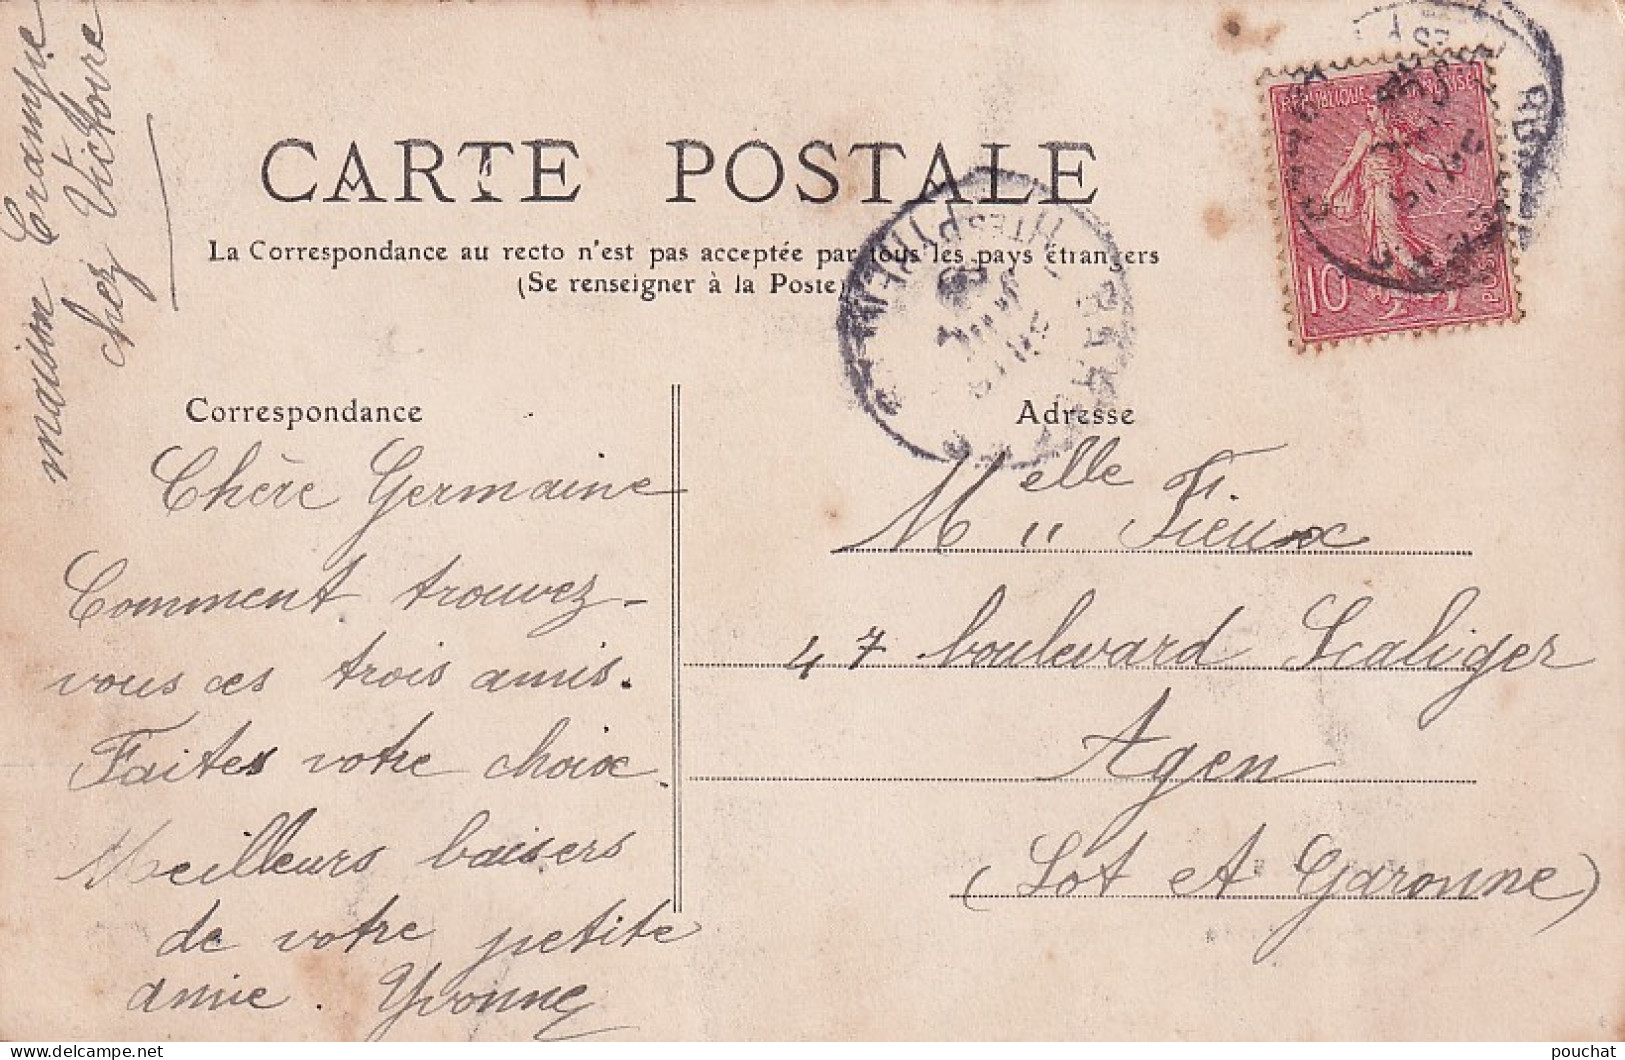 maison Crampe
chez Victoire
CARTE POSTALE
La Correspondance au recto n'est pas acceptée par tous les pays étrangers
(Se renseigner à la Poste)
REPUBLIQUE FRANÇAISE
10
POSTES
Correspondance
Chère Germaine
Comment trouvez-
vous ces trois amis.
Faites votre choix
Meilleurs baisers
de votre petite
amie. Yvonne
Adresse
Melle G. Fieux
47 boulevard Scaliger
Agen
(Lot et Garonne)
pouchat